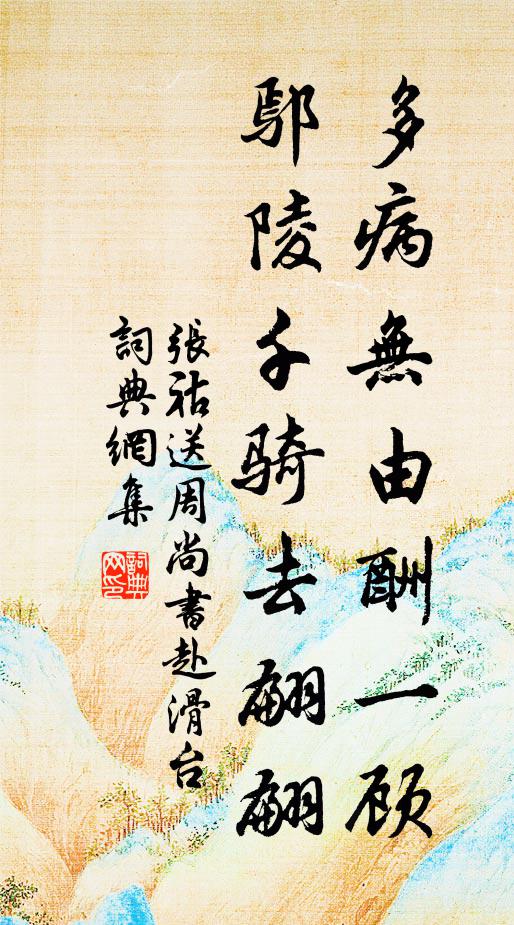 多病無由酬一顧
鄢陵千騎去翩翩
張祜送周尚書赴滑台
詞典網集